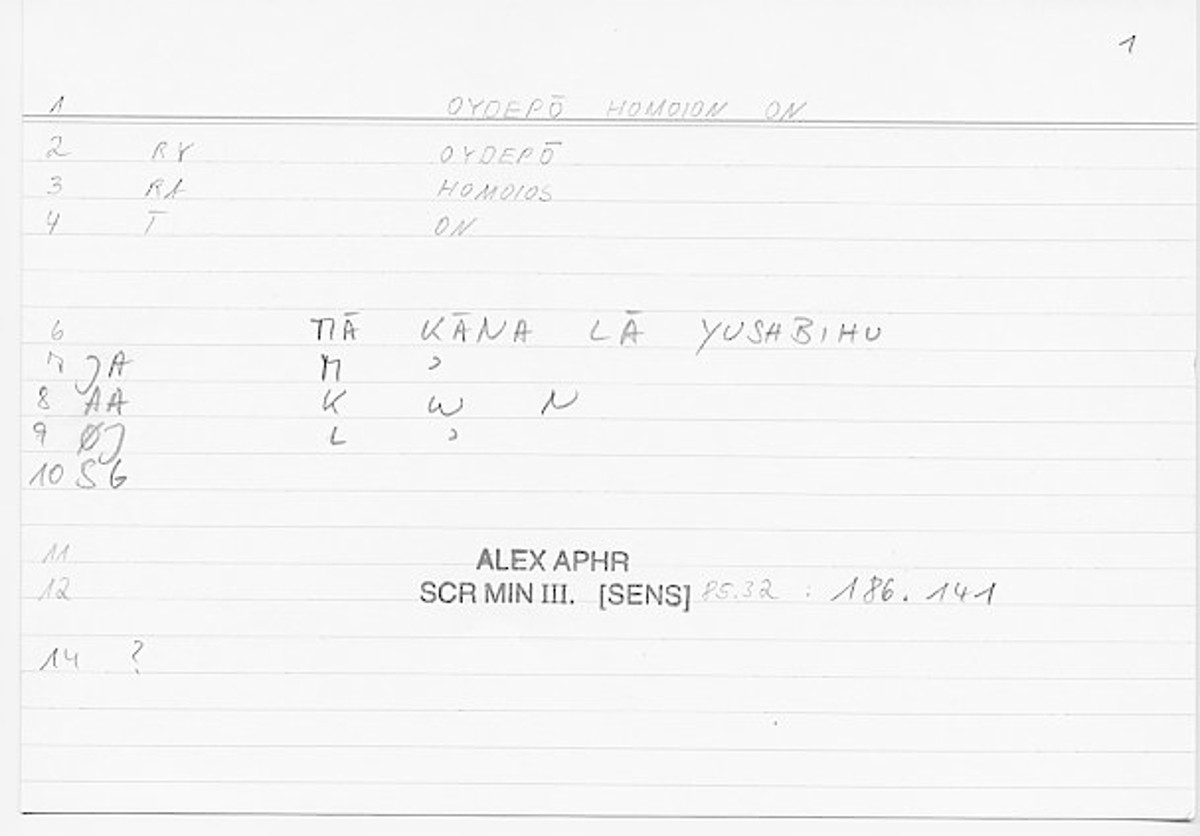 1
1 OYDEPŌ HOMOION ON
2 RY OYDEPŌ
3 RA HOMOIOS
4 T ON
6 MĀ KĀNA LĀ YUSHBIHU
7 JA M ʾ
8 AA K W N
9 ØJ L ʾ
10 SG
11 ALEX APHR
12 SCR MIN III. [SENS] 85.32 : 186.141
14 ?